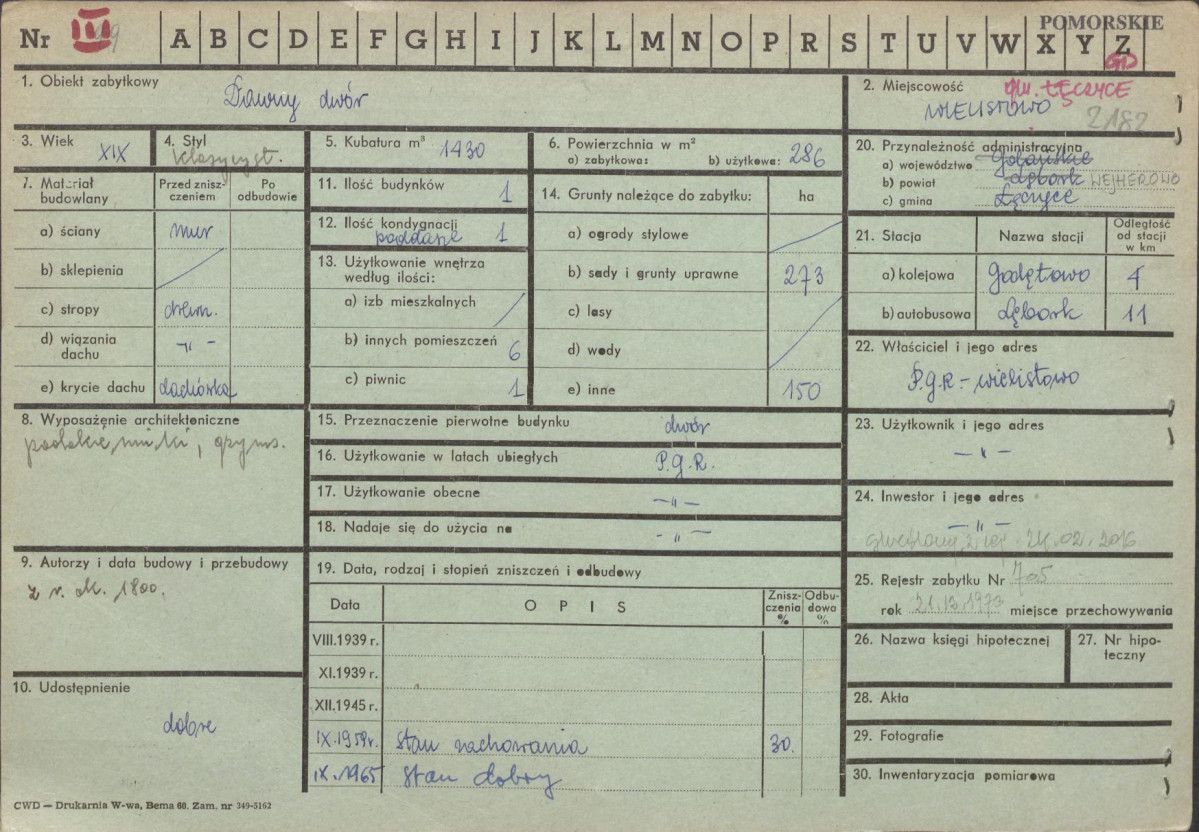 POMORSKIE
Nr III A B C D E F G H I J K L M N O P R S T U V W X Y Z
GD
1. Obiekt zabytkowy
Dawny dwór
2. Miejscowość
gm. ŁĘCZYCE
WIELISTOWO
2182
3. Wiek
XIX
4. Styl
klasycyst.
5. Kubatura m³
1430
6. Powierzchnia w m²
a) zabytkowa: b) użytkowa: 286
7. Materiał budowlany
Przed zniszczeniem
Po odbudowie
a) ściany mur
b) sklepienia
c) stropy drewn.
d) wiązania dachu -„-
e) krycie dachu dachówka
8. Wyposażenie architektoniczne
gzyms.
9. Autorzy i data budowy i przebudowy
z r. ok. 1800.
10. Udostępnienie
dobre
11. Ilość budynków 1
12. Ilość kondygnacji 1
poddasze
13. Użytkowanie wnętrza według ilości:
a) izb mieszkalnych
b) innych pomieszczeń 6
c) piwnic 1
14. Grunty należące do zabytku: ha
a) ogrody stylowe
b) sady i grunty uprawne 273
c) lasy
d) wody
e) inne 150
15. Przeznaczenie pierwotne budynku dwór
16. Użytkowanie w latach ubiegłych P.G.R.
17. Użytkowanie obecne -„-
18. Nadaje się do użycia na -„-
19. Data, rodzaj i stopień zniszczeń i odbudowy
Data OPIS Zniszczenia % Odbudowa %
VIII.1939 r.
XI.1939 r.
XII.1945 r.
IX.1959r. stan zachowania 30.
IX.1965 stan dobry
20. Przynależność administracyjna
a) województwo Gdańskie
b) powiat Lębork WEJHEROWO
c) gmina Łęczyce
21. Stacja Nazwa stacji Odległość od stacji w km
a) kolejowa Godętowo 4
b) autobusowa Lębork 11
22. Właściciel i jego adres
P.G.R - Wielistowo
23. Użytkownik i jego adres
-„-
24. Inwestor i jego adres
-„-
24.02.2016
25. Rejestr zabytku Nr 705
rok 21.12.1973 miejsce przechowywania
26. Nazwa księgi hipotecznej
27. Nr hipoteczny
28. Akta
29. Fotografie
30. Inwentaryzacja pomiarowa
CWD — Drukarnia W-wa, Bema 60. Zam. nr 349-5162